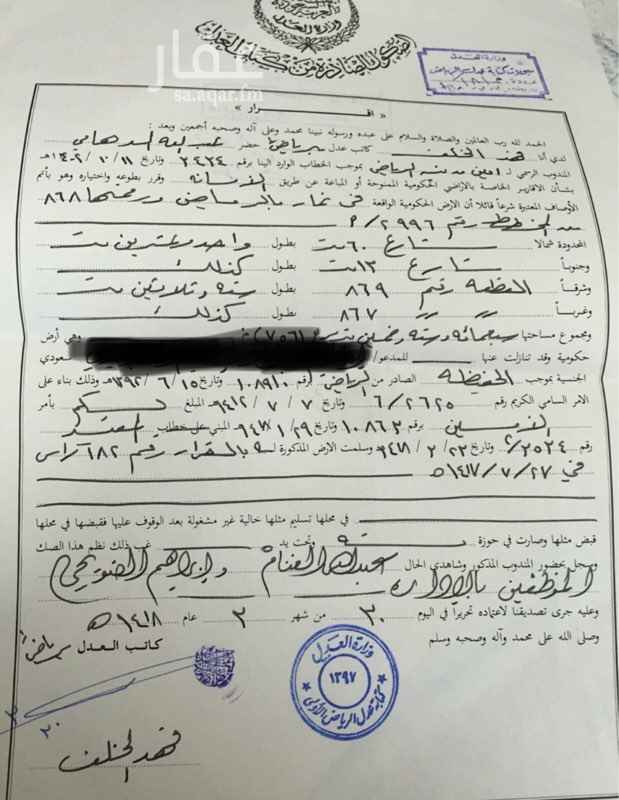 وزارة العدل
صكوك الصادرة من كتابة العدل
وزارة العدل
عقار
sa.aqar.fm
« اقـــرار »
الحمد لله رب العالمين والصلاة والسلام على عبده ورسوله نبينا محمد وعلى آله وصحبه أجمعين وبعد :
لدي أنا فهد الخلف كاتب عدل الرياض حضر عبد الله الدهامي
المندوب الرسمي لـ امين مدينة الرياض بموجب الخطاب الوارد الينا برقم ٢٤٢٤ وتاريخ
بشأن الأقارير الخاصة بالأراضي الحكومية الممنوحة أو المباعة عن طريق الأمانة وقرر بطوعه واختياره وهو بأتم
الأوصاف المعتبرة شرعاً قائلا أن الأرض الحكومية الواقعة في نمار بالرياض ورقمها ٨٦٨
من المخطط رقم ٢٩٩٦
المحدودة شمالا شارع ٦٠ مت بطول واحد وعشرين مت
وجنوباً شارع ١٣ مت بطول كذلك
وشرقاً القطعة رقم ٨٦٩ بطول ستة وثلاثين مت
وغرباً ” ” ٨٦٧ بطول كذلك
ومجموع مساحتها سبعمائة وستة وخمسين متر (٧٥٦) وهي أرض
حكومية وقد تنازلت عنها للمدعو/ سعودي
الجنسية بموجب الحفيظة الصادر من الرياض برقم ١٠٨٩١٠ وتاريخ ١٥ / ٦ / ١٣٩٢هـ وذلك بناء على
الامر السامي الكريم رقم ٢٦٢٥ / ٦ وتاريخ ٧ / ٧ / المبلغ لكم بأمر
برقم ١٠٨٦٣ وتاريخ ٢٩ / ١ / المبني على خطاب
رقم ٢٥٢٤ وتاريخ ٢٣ / ٢ / وسلمت الأرض المذكورة له بالقرار رقم ١٨٢
في ٢٧ / ٧ / ١٤١٧ هـ
في محلها تسليم مثلها خالية غير مشغولة بعد الوقوف عليها فقبضها في محلها
قبض مثلها وصارت في حوزة وتحت يد غب ذلك نظم هذا الصك
وسجل بحضور المندوب المذكور وشاهدي الحال عبدالله الغنام وابراهيم الضويحي
الموظفين بالإدارة
وعليه جرى تصديقنا لاعتماده تحريراً في اليوم ٣٠ من شهر ٢ عام ١٤١٨ هـ
وصلى الله على محمد وآله وصحبه وسلم
كاتب العدل الرياض
وزارة العدل
١٣٩٧
كتابة عدل الرياض الأولى
فهد الخلف